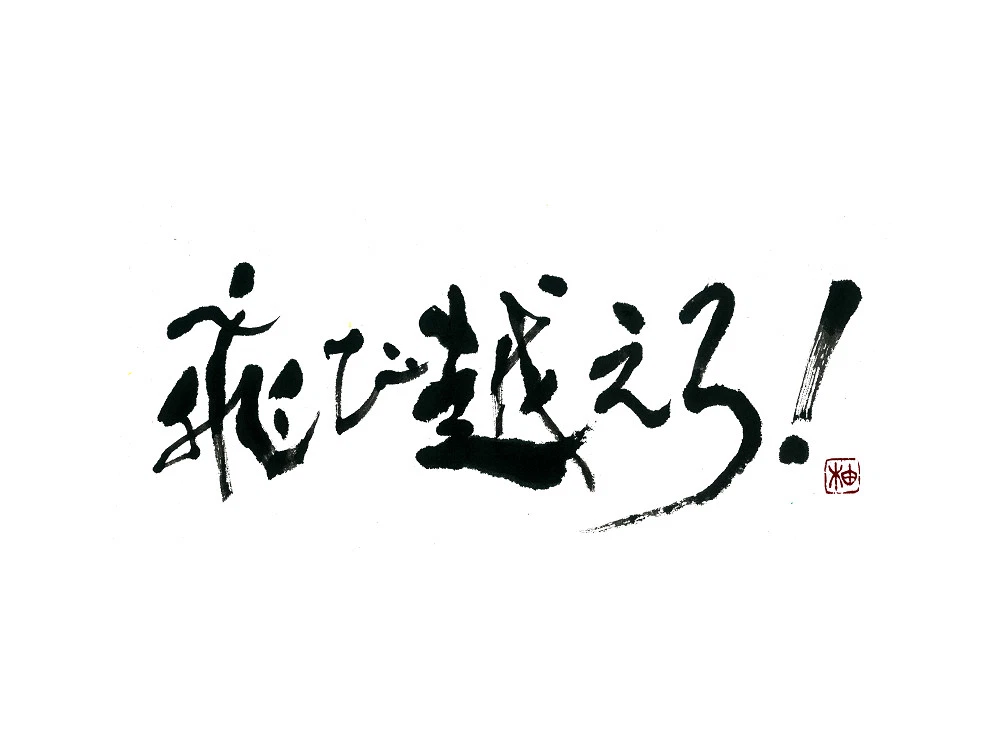 飛び越えろ!
柚